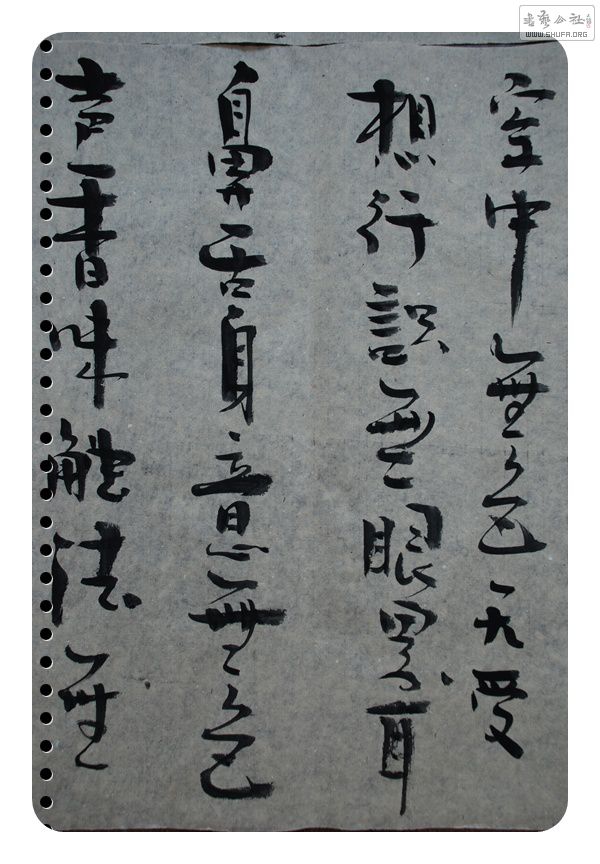 空中無色无受
想行識無眼界耳
鼻舌身意無色
声香味觸法無
書藝公社
WWW.SHUFA.ORG